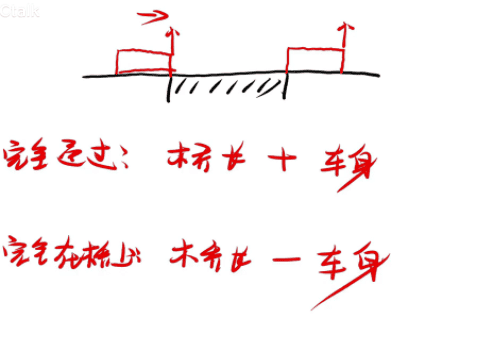 Ctalk
完全通过：桥长 + 车身
完全在桥上：桥长 - 车身